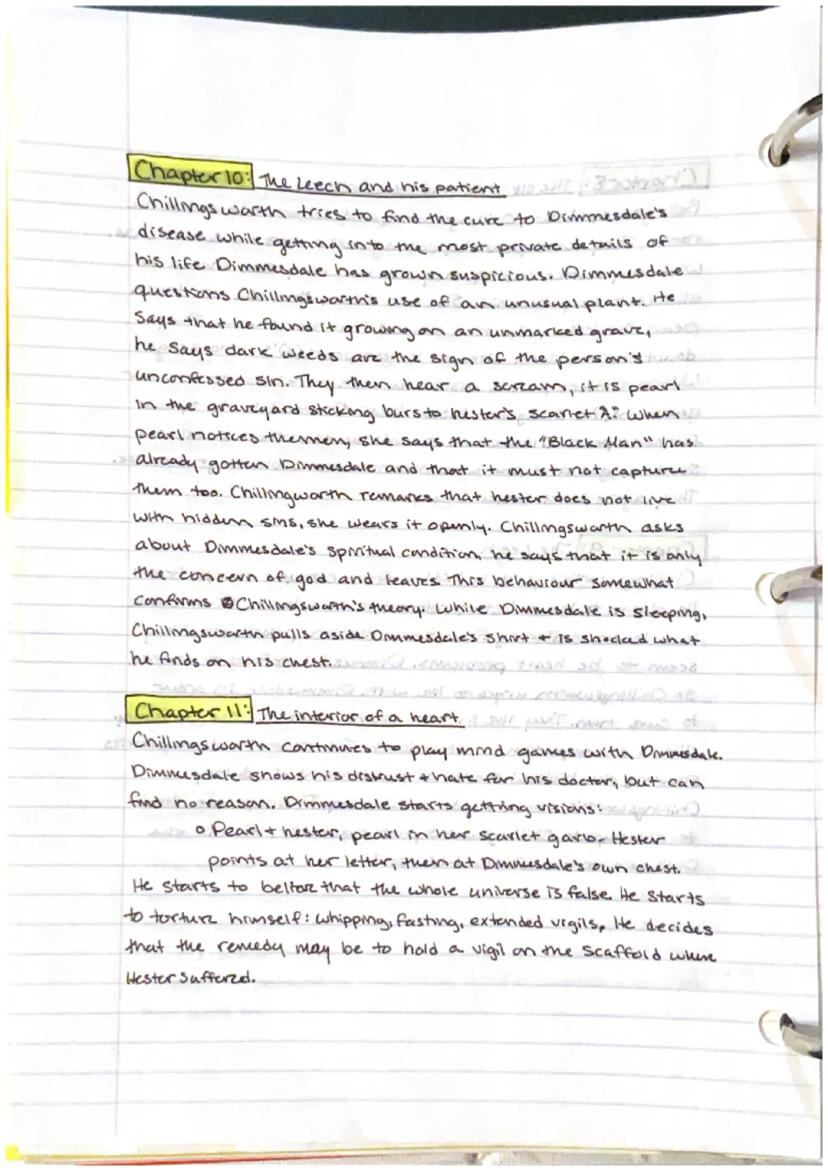 Chapter 10: The Leech and his patient
Chillingsworth tries to find the cure to Dimmesdale's
disease while getting into the most private details of
his life. Dimmesdale has grown suspicious. Dimmesdale
questions Chillingsworth's use of an unusual plant. He
says that he found it growing on an unmarked grave,
he says dark weeds are the sign of the person's
unconfessed sin. They then hear a scream, it is pearl
in the graveyard sticking burs to hester's scarlet "A." When
pearl notices the men, she says that the "Black Man" has
already gotten Dimmesdale and that it must not capture
them too. Chillingworth remarks that hester does not live
with hidden sins, she wears it openly. Chillingsworth asks
about Dimmesdale's spiritual condition, he says that it is only
the concern of god and leaves. This behaviour somewhat
confirms Chillingsworth's theory. While Dimmesdale is sleeping,
Chillingsworth pulls aside Dimmesdale's shirt + is shocked what
he finds on his chest.
Chapter 11: The interior of a heart
Chillingsworth continues to play mind games with Dimmesdale.
Dimmesdale shows his distrust + hate for his doctor, but can
find no reason. Dimmesdale starts getting visions:
o Pearl + hester, pearl in her scarlet garb. Hester
points at her letter, then at Dimmesdale's own chest.
He starts to that the whole universe is false. He starts
to torture himself: whipping, fasting, extended vigils. He decides
that the remedy may be to hold a vigil on the scaffold where
Hester suffered.